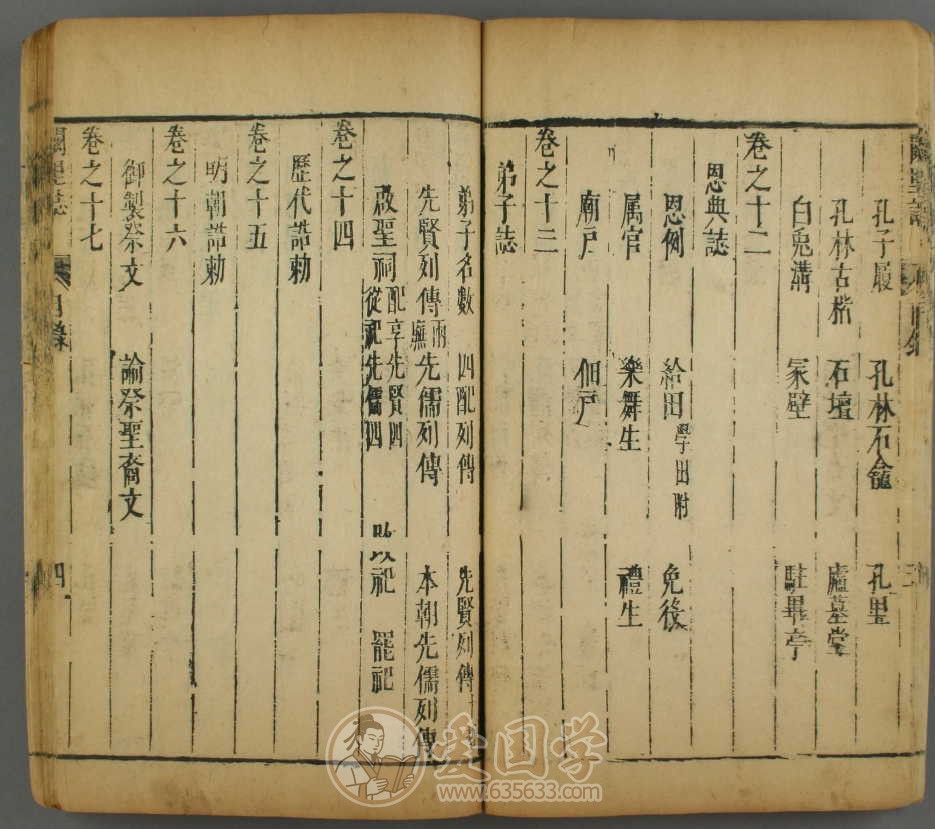 孔子履 孔林石龕 孔里
孔林古楷 石壇 廬墓堂
白兔溝 冢壁 駐蹕亭
卷之十二
恩典誌
恩例 給田 學田附 免役
属官 樂舞生 禮生
廟戶 佃戶
卷之十三
弟子誌
弟子名數 四配列傳 先賢列傳
先賢列傳 兩廡 先儒列傳 本朝先儒列傳
啟聖祠 配享先賢四 從祀先儒四 改祀 罷祀
卷之十四
歷代誥勅
卷之十五
明朝誥勅
卷之十六
御製祭文 諭祭聖裔文
卷之十七
闕里誌 目錄 四
爱国学
www.635633.com